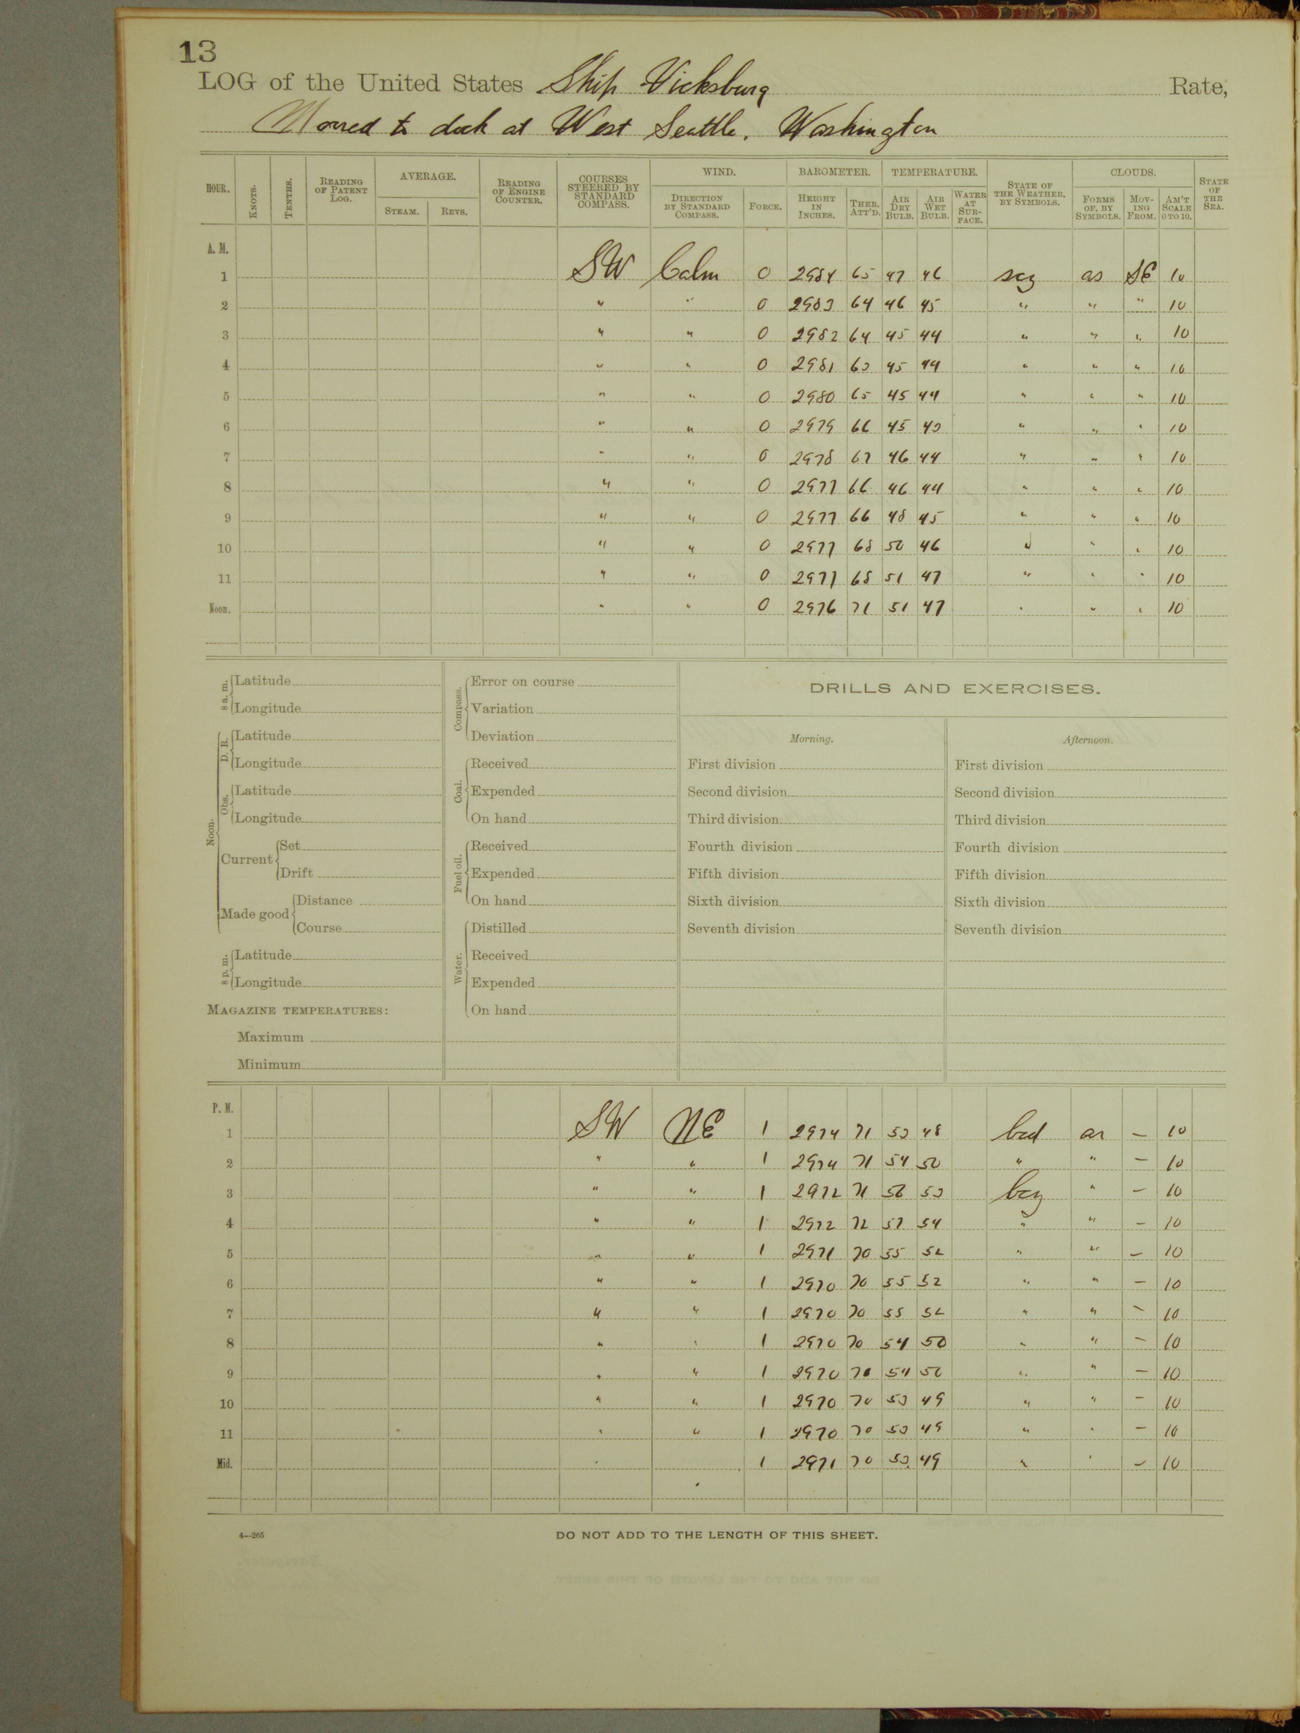 13
LOG of the United States Ship Vicksburg Rate,
Moored to dock at West Seattle, Washington
HOUR. KNOTS. TENTHS. READING OF PATENT LOG. AVERAGE. STEAM. REVS. READING OF ENGINE COUNTER. COURSES STEERED BY STANDARD COMPASS. WIND. DIRECTION BY STANDARD COMPASS. FORCE. BAROMETER. HEIGHT IN INCHES. THER. ATT'D. TEMPERATURE. AIR DRY BULB. AIR WET BULB. WATER AT SURFACE. STATE OF THE WEATHER, BY SYMBOLS. CLOUDS. FORMS OF, BY SYMBOLS. MOVING FROM. AM'T SCALE 0 TO 10. STATE OF THE SEA.
A. M.
1 SW Calm 0 2984 65 47 46 as SE 10
2 " " 0 2983 64 46 45 " " " 10
3 " " 0 2982 64 45 44 " " " 10
4 " " 0 2981 63 45 44 " " " 10
5 " " 0 2980 65 45 44 " " " 10
6 " " 0 2979 66 45 43 " " " 10
7 " " 0 2978 67 46 44 " " " 10
8 " " 0 2977 66 46 44 " " " 10
9 " " 0 2977 66 48 45 " " " 10
10 " " 0 2977 68 50 46 " " " 10
11 " " 0 2977 68 51 47 " " " 10
Noon. " " 0 2976 71 51 47 " " " 10
8 a. m. Latitude
Longitude
Noon. D. R. Latitude
Longitude
Obs. Latitude
Longitude
Current Set
Drift
Made good Distance
Course
8 p. m. Latitude
Longitude
MAGAZINE TEMPERATURES:
Maximum
Minimum
Compass. Error on course
Variation
Deviation
Coal. Received
Expended
On hand
Fuel oil. Received
Expended
On hand
Water. Distilled
Received
Expended
On hand
DRILLS AND EXERCISES.
Morning. Afternoon.
First division First division
Second division Second division
Third division Third division
Fourth division Fourth division
Fifth division Fifth division
Sixth division Sixth division
Seventh division Seventh division
P. M.
1 SW NE 1 2974 71 53 48 as — 10
2 " " 1 2974 71 54 50 " " — 10
3 " " 1 2972 71 56 53 bcz " — 10
4 " " 1 2972 72 57 54 " " — 10
5 " " 1 2971 70 55 52 " " — 10
6 " " 1 2970 70 55 52 " " — 10
7 " " 1 2970 70 55 52 " " — 10
8 " " 1 2970 70 54 50 " " — 10
9 " " 1 2970 70 54 50 " " — 10
10 " " 1 2970 70 53 49 " " — 10
11 " " 1 2970 70 53 49 " " — 10
Mid. " 1 2971 70 53 49 " " — 10
4—265
DO NOT ADD TO THE LENGTH OF THIS SHEET.